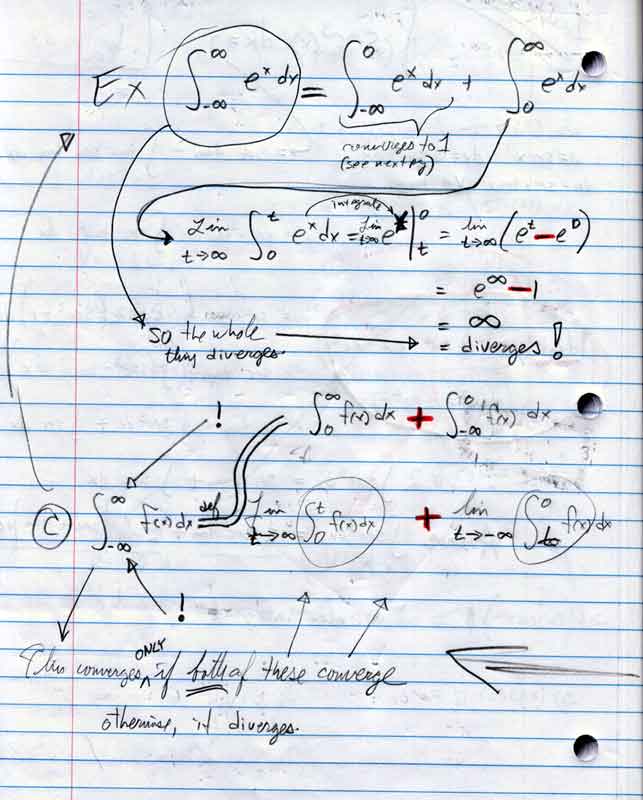 Ex ∫_{-∞}^{∞} e^x dx = ∫_{-∞}^{0} e^x dx + ∫_{0}^{∞} e^x dx
converges to 1
(see next pg)
integrate
Lim_{t→∞} ∫_{0}^{t} e^x dx = Lim_{t→∞} e^x |_{t}^{0} = lim_{t→∞} (e^t − e^0)
= e^∞ − 1
= ∞
So the whole
thing diverges.
= diverges!
!
∫_{0}^{∞} f(x) dx + ∫_{-∞}^{0} f(x) dx
(C) ∫_{-∞}^{∞} f(x) dx =def Lim_{t→∞} ∫_{0}^{t} f(x) dx + lim_{t→-∞} ∫_{t}^{0} f(x) dx
!
This converges ONLY if both of these converge
otherwise, it diverges.